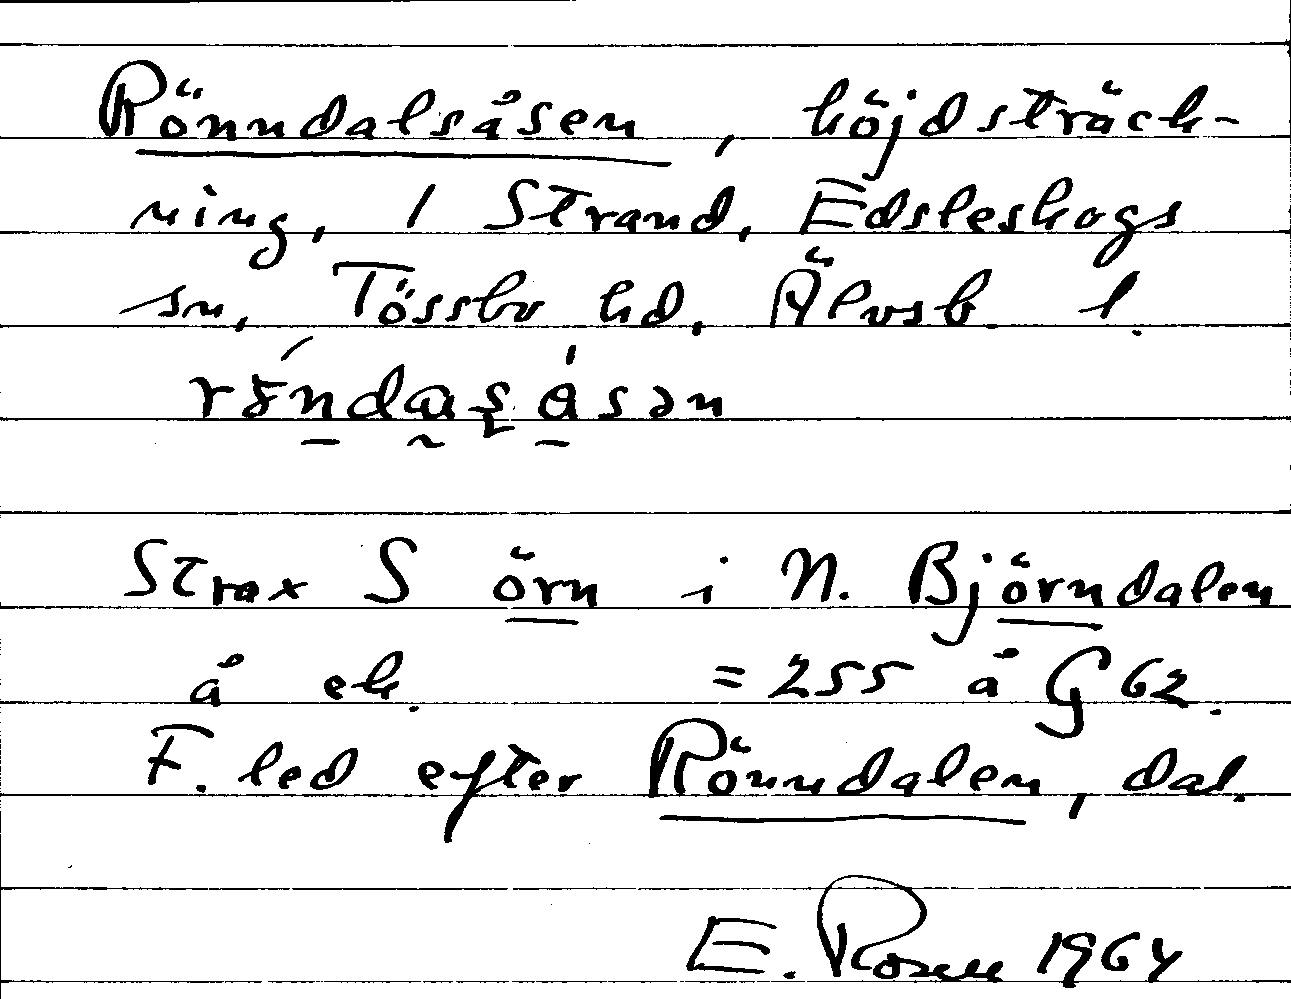 Rönndalsåsen, höjdsträck-
ning, 1 Strand, Edsleskogs
sn, Tössbo hd, Älvsb. l.
Strax S örn i N. Björndalen
å ek. = 255 å G 62.
F. led efter Rönndalen, dal.
E. Rosen 1964